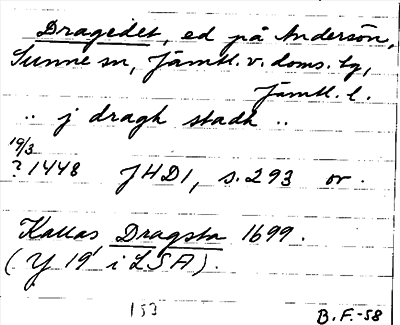 Dragedet, ed på Andersön,
Sunne sn, Jämtl. v. doms. tg,
Jämtl. l.
.. j dragh stadh ..
19/3
? 1448 JHD1, s. 293 or.
Kallas Dragsta 1699.
(Y 19 i LSA).
153 B.F.-58